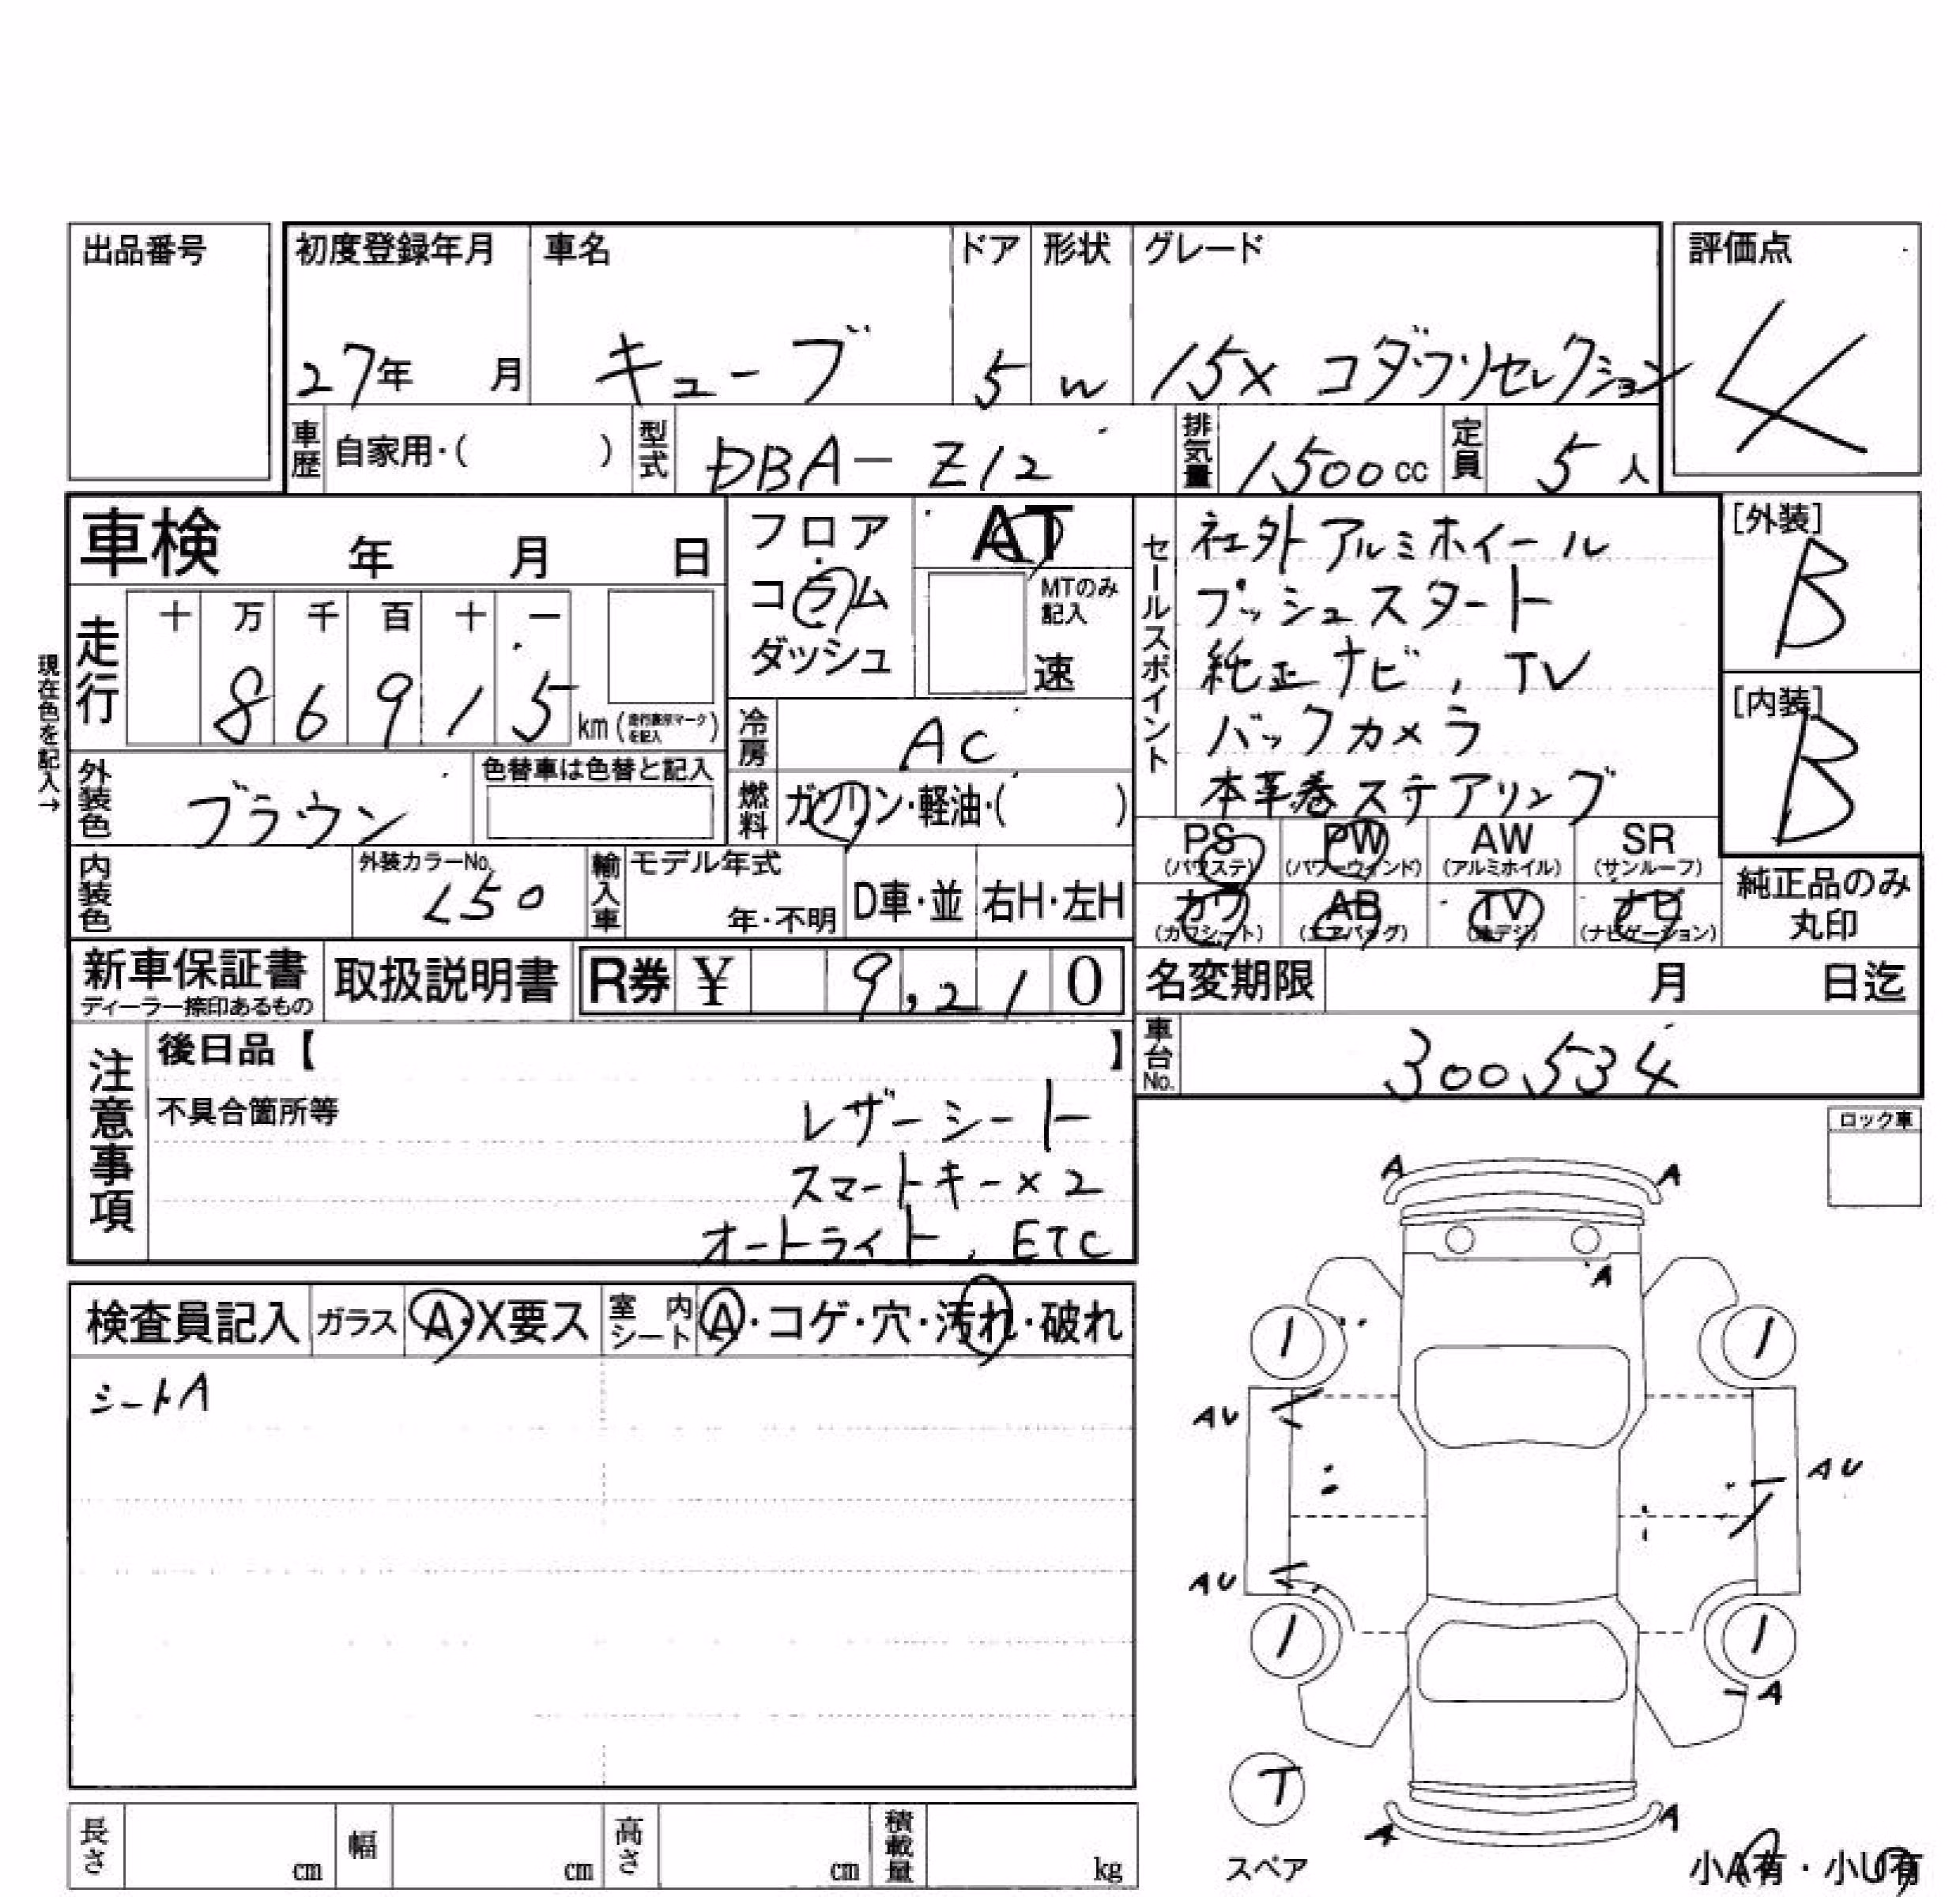 出品番号
初度登録年月 車名 ドア 形状 グレード 評価点
27年 月 キューブ 5 W 15X コダワリセレクション 4
車歴 自家用・( ) 型式 DBA-Z12 排気量 1500cc 定員 5人
車検 年 月 日
フロア・コラム ダッシュ
AT
MTのみ記入
速
セールスポイント
社外アルミホイール
プッシュスタート
純正ナビ, TV
バックカメラ
本革巻ステアリング
[外装]
B
[内装]
B
現在色を記入→
走行 十 万 千 百 十 一
8 6 9 1 5 km (走行表示マークを記入)
冷房 AC
外装色 ブラウン 色替車は色替と記入
燃料 ガソリン・軽油・( )
PS (パワステ) PW (パワーウィンド) AW (アルミホイル) SR (サンルーフ)
カワ (カワシート) AB (エアバッグ) TV (地デジ) ナビ (ナビゲーション)
純正品のみ
丸印
内装色 外装カラーNo. L50 輸入車 モデル年式 年・不明 D車・並 右H・左H
新車保証書 ディーラー捺印あるもの 取扱説明書 R券 ¥ 9,210
名変期限 月 日迄
車台No. 300534
注意事項
後日品【 】
不具合箇所等
レザーシート
スマートキー×2
オートライト, ETC
ロック車
検査員記入 ガラス A・X要ス 室内シート A・コゲ・穴・汚れ・破れ
シートA
A A
A
1 1
AU
AU
AU
1 1
A
T
スペア
A A
小A有・小U有
長さ cm 幅 cm 高さ cm 積載量 kg